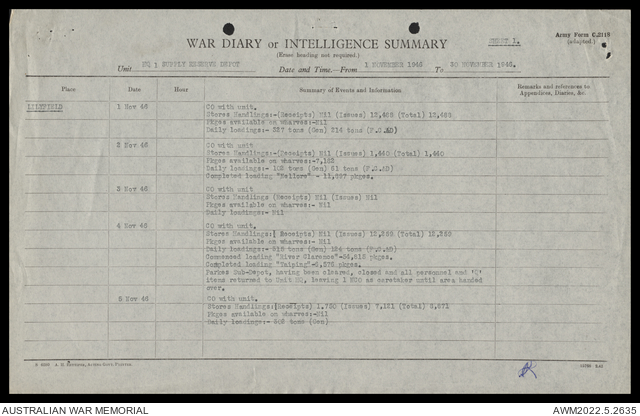 WAR DIARY or INTELLIGENCE SUMMARY
(Erase heading not required.)
SHEET 1.
Army Form C.2118
(adapted.)
Unit HQ 1 SUPPLY RESERVE DEPOT Date and Time.—From 1 NOVEMBER 1946 To 30 NOVEMBER 1946.
Place Date Hour Summary of Events and Information Remarks and references to Appendices, Diaries, &c.
LILYFIELD 1 Nov 46 CO with unit.
Stores Handlings:-(Receipts) Nil (Issues) 12,468 (Total) 12,468
Pkges available on wharves:-Nil
Daily loadings:- 327 tons (Gen) 214 tons (F.O.AD)
2 Nov 46 CO with unit
Stores Handlings:-(Receipts) Nil (Issues) 1,440 (Total) 1,440
Pkges available on wharves:-7,162
Daily loadings:- 102 tons (Gen) 51 tons (F.O.AD)
Completed loading "Nellore" - 11,697 pkges.
3 Nov 46 CO with unit
Stores Handlings (Receipts) Nil (Issues) Nil
Pkges available on wharves:- Nil
Daily loadings:- Nil
4 Nov 46 CO with unit.
Stores Handlings:(Receipts) Nil (Issues) 12,259 (Total) 12,259
Pkges available on wharves:- Nil
Daily loadings:- 518 tons (Gen) 124 tons (F.O.AD)
Commenced loading "River Clarence"-54,815 pkges.
Completed loading "Taiping"-5,575 pkges.
Parkes Sub-Depot, having been cleared, closed and all personnel and 'G'
items returned to Unit HQ, leaving 1 NCO as caretaker until area handed
over.
5 Nov 46 CO with unit.
Stores Handlings:(Receipts) 1,750 (Issues) 7,121 (Total) 8,871
Pkges available on wharves:-Nil
Daily loadings:- 502 tons (Gen)
AUSTRALIAN WAR MEMORIAL
AWM2022.5.2635